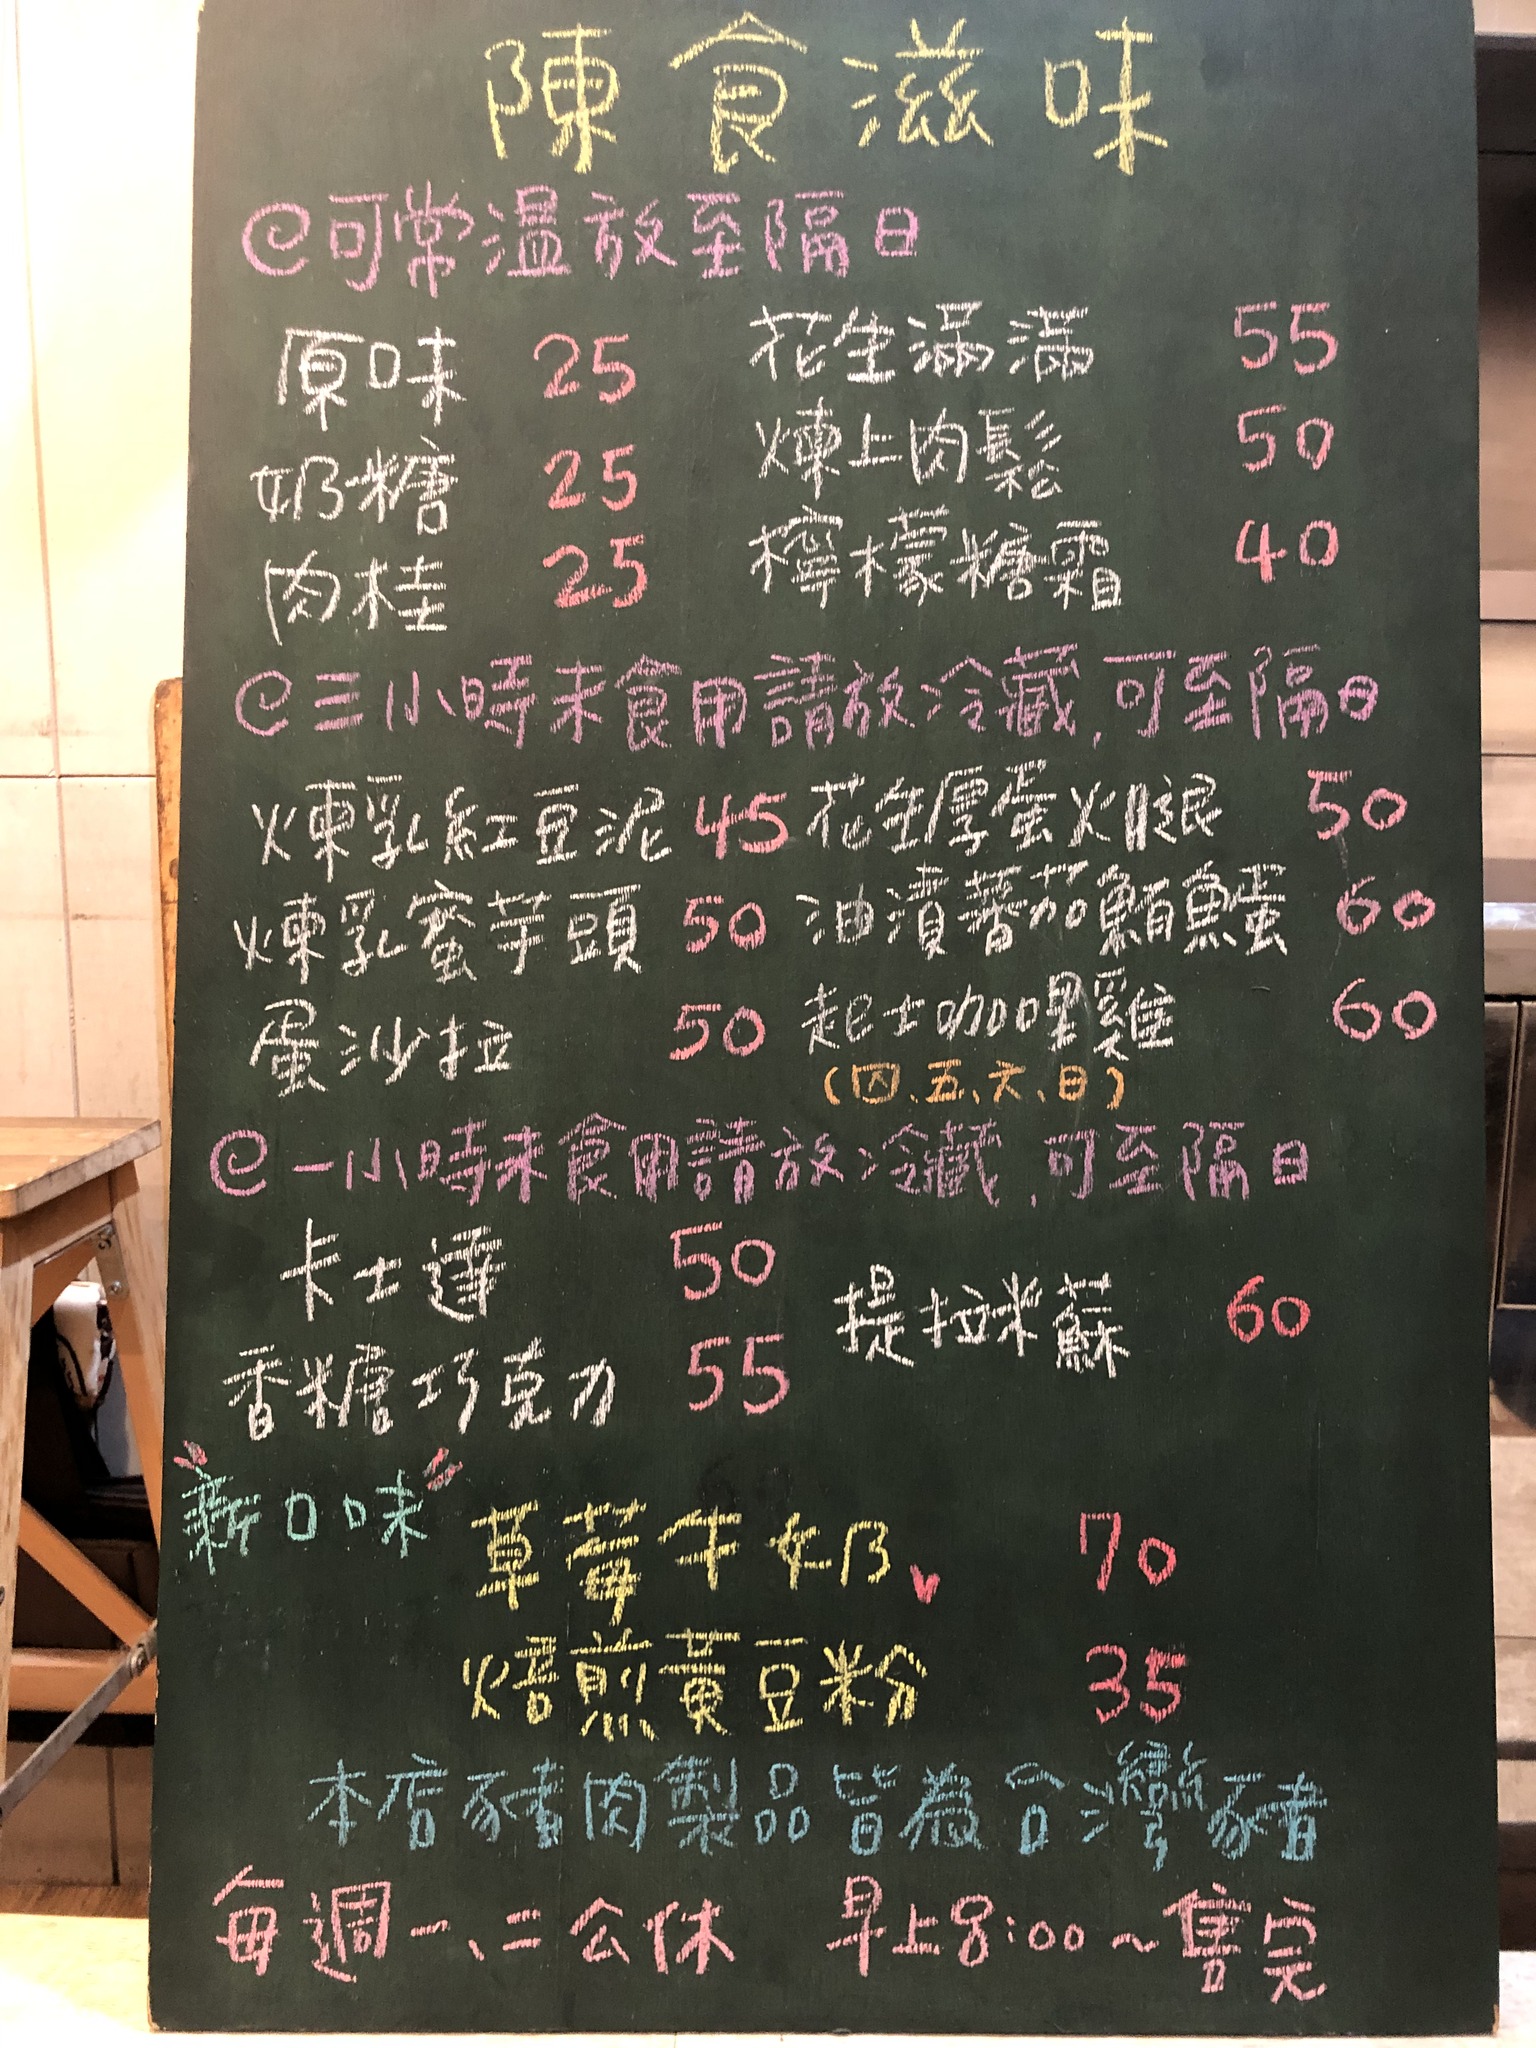 陳食滋味
@可常溫放至隔日
原味 25 花生滿滿 55
奶糖 25 煉上肉鬆 50
肉桂 25 檸檬糖霜 40
@三小時未食用請放冷藏,可至隔日
煉乳紅豆泥 45 花生厚蛋火腿 50
煉乳蜜芋頭 50 油漬蕃茄鮪魚蛋 60
蛋沙拉 50 起士咖哩雞 60
(四、五、六、日)
@一小時未食用請放冷藏,可至隔日
卡士達 50 提拉米蘇 60
香糖巧克力 55
新口味
草莓牛奶 70
焙煎黃豆粉 35
本店豬肉製品皆為台灣豬
每週一、二公休 早上8:00~售完